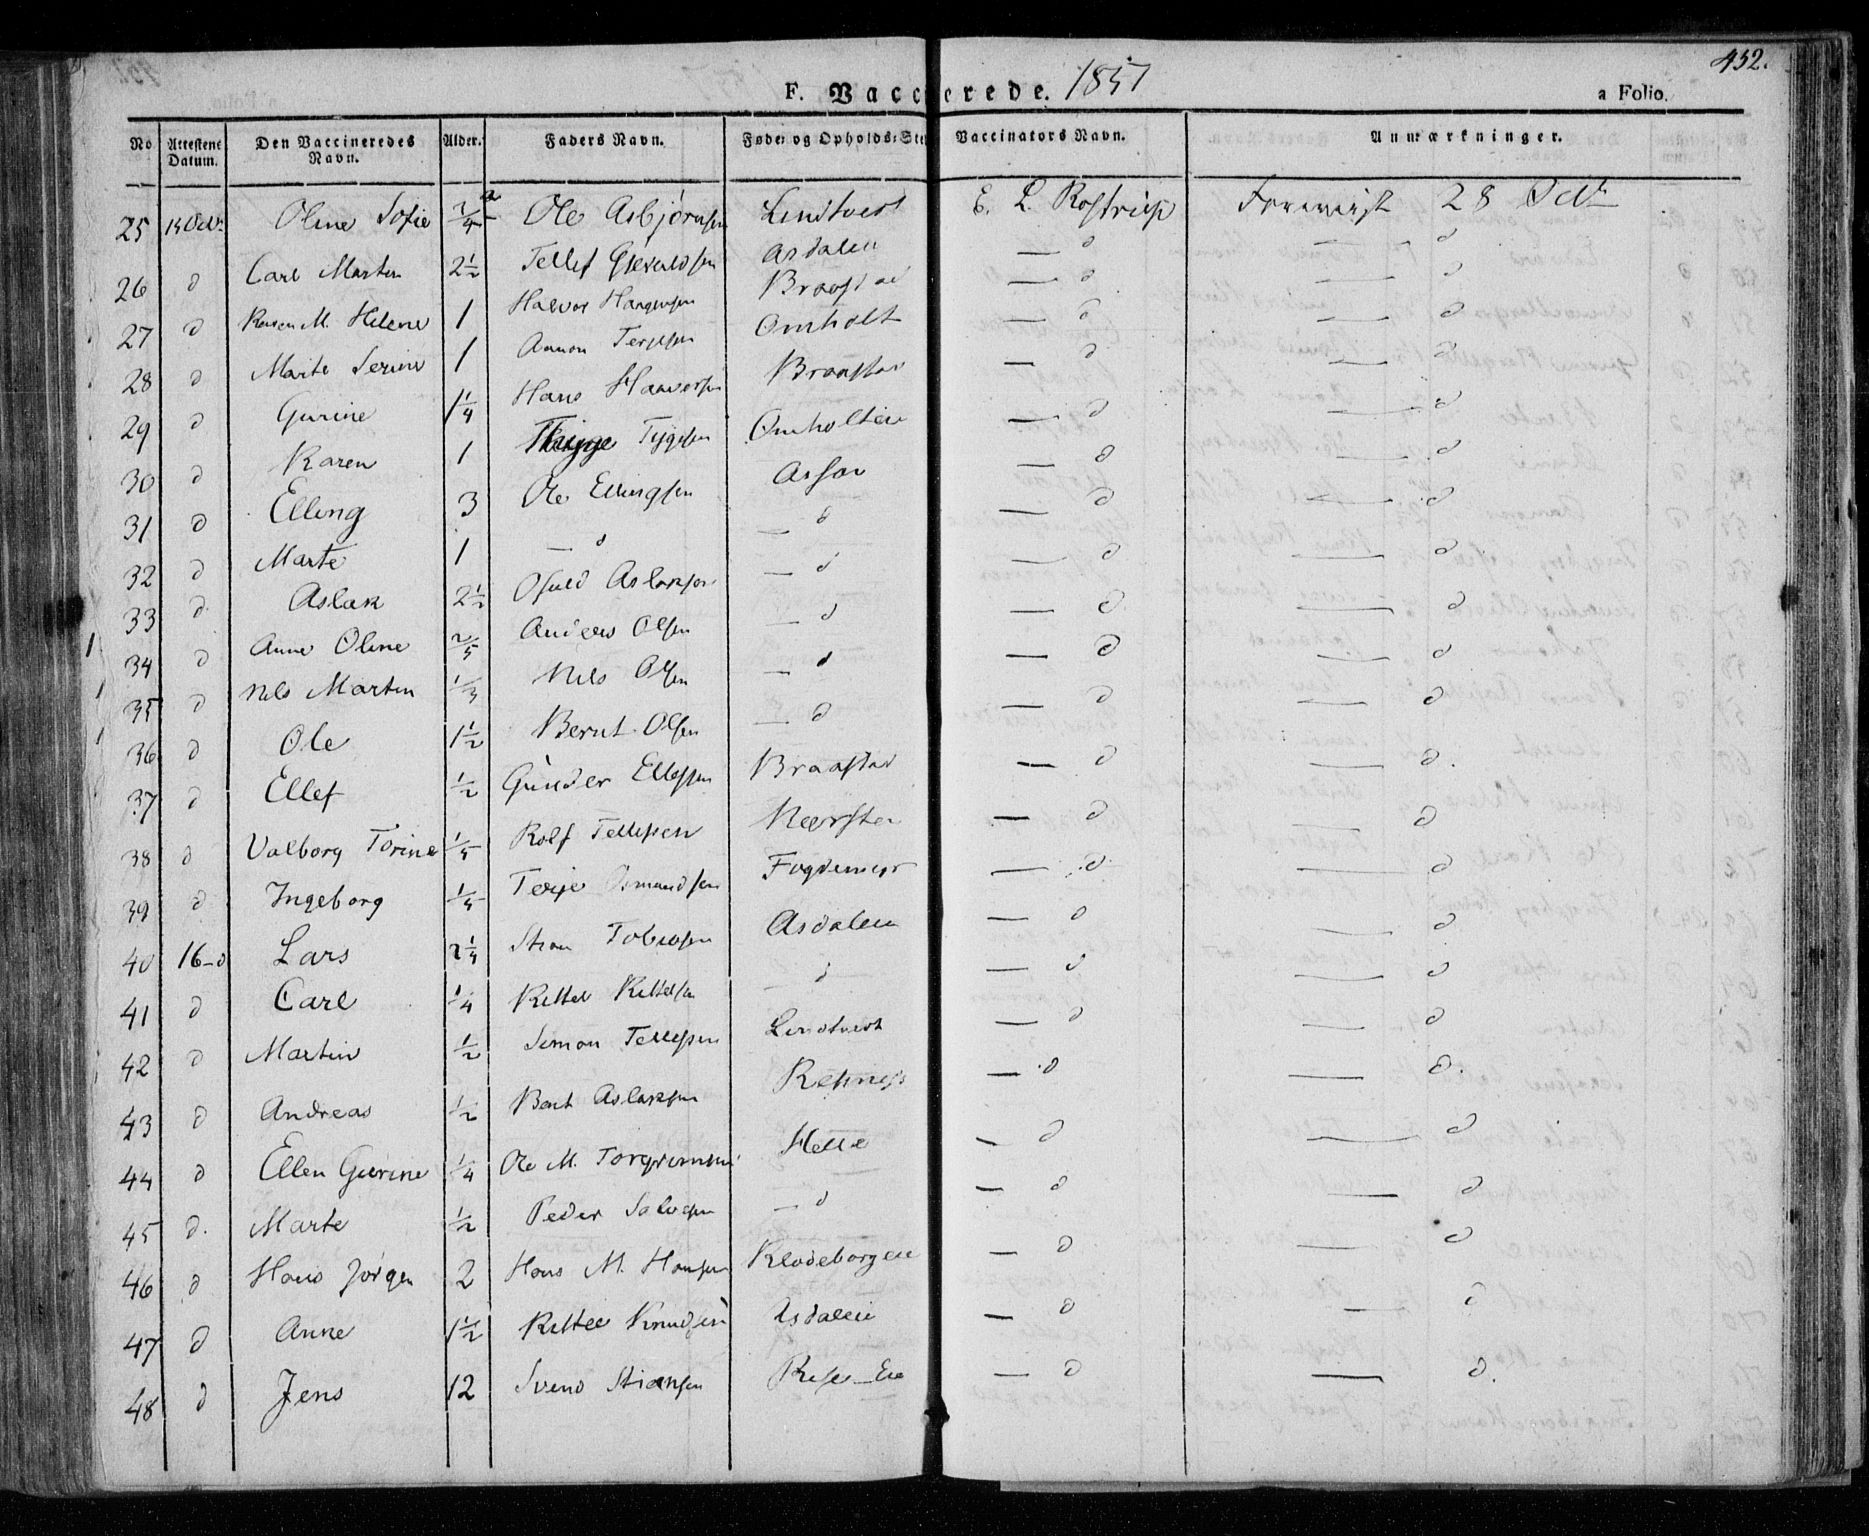 452.
F. Vaccinerede. 1857
a Folio.
No Attestens Datum. Den Vaccineredes Navn. Alder. Faders Navn. Føde- og Opholds-Sted Vaccinators Navn. Anmærkninger.
25 Oline Sofie Ole Asbjørnsen Lindtveit E. L. 28 Octr
26 d Carl Martin 2½ Tellef Asdalen — d — d
27 d Karen M. Helene 1 Halvor Braastad — d — d
28 d Marte Serine 1 Aamon Terjesen Omholt — d — d
29 d Gurine 1¼ Hans Haavorsen Braastad — d — d
30 d Karen 1 Tygesen Omholten — d — d
31 d Elling 3 Ole Ellingsen Assen — d — d
32 d Marte 1 — d — d — d — d
33 d Aslak 2½ Osuld Aslaksen — d — d — d
34 d Anne Oline 2/5 Anders Olsen — d — d — d
35 d Nils Martin 1/3 Nils Olsen — d — d — d
36 d Ole 1½ Bernt Olsen — d — d — d
37 d Ellef ½ Gunder Ellefsen Braastad — d — d.
38 d Valborg Torine 1/5 Rolf Tellefsen Neersten — d — d
39 d Ingeborg 1/5 Terje Osmundsen Fogdemyr — d — d
40 16 - d Lars 2¼ Stian Tobiasen Asdalen — d — d
41 d Carl ¼ Kittel Kittelsen — d — d — d
42 d Martin ½ Simon Tellefsen Lindtveit — d — d
43 d Andreas ½ Bent Aslaksen — d — d.
44 d Ellen Gurine ¼ Ole M. Torgrimsen Helle — d — d
45 d. Marte ½ Peder Salvesen — d — d — d
46 d Hans Jørgen 2 Hans M. Hansen Klodeborgen — d — d
47 d Anne 1½ Kittel Knudsen Asdalen — d — d
48 d Jens 12 Svend Stiansen — d — d.